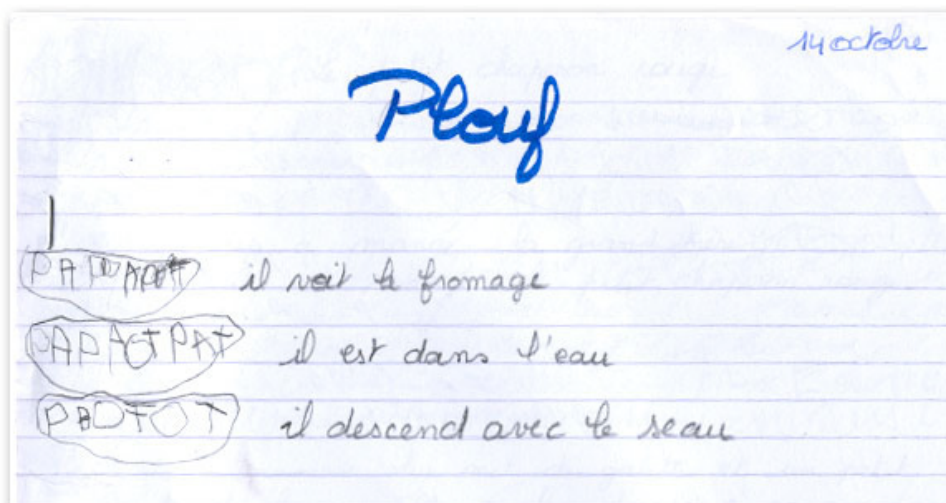 14 octobre
Plouf
il voit le fromage
PAPAOTPAT il est dans l'eau
il descend avec le seau